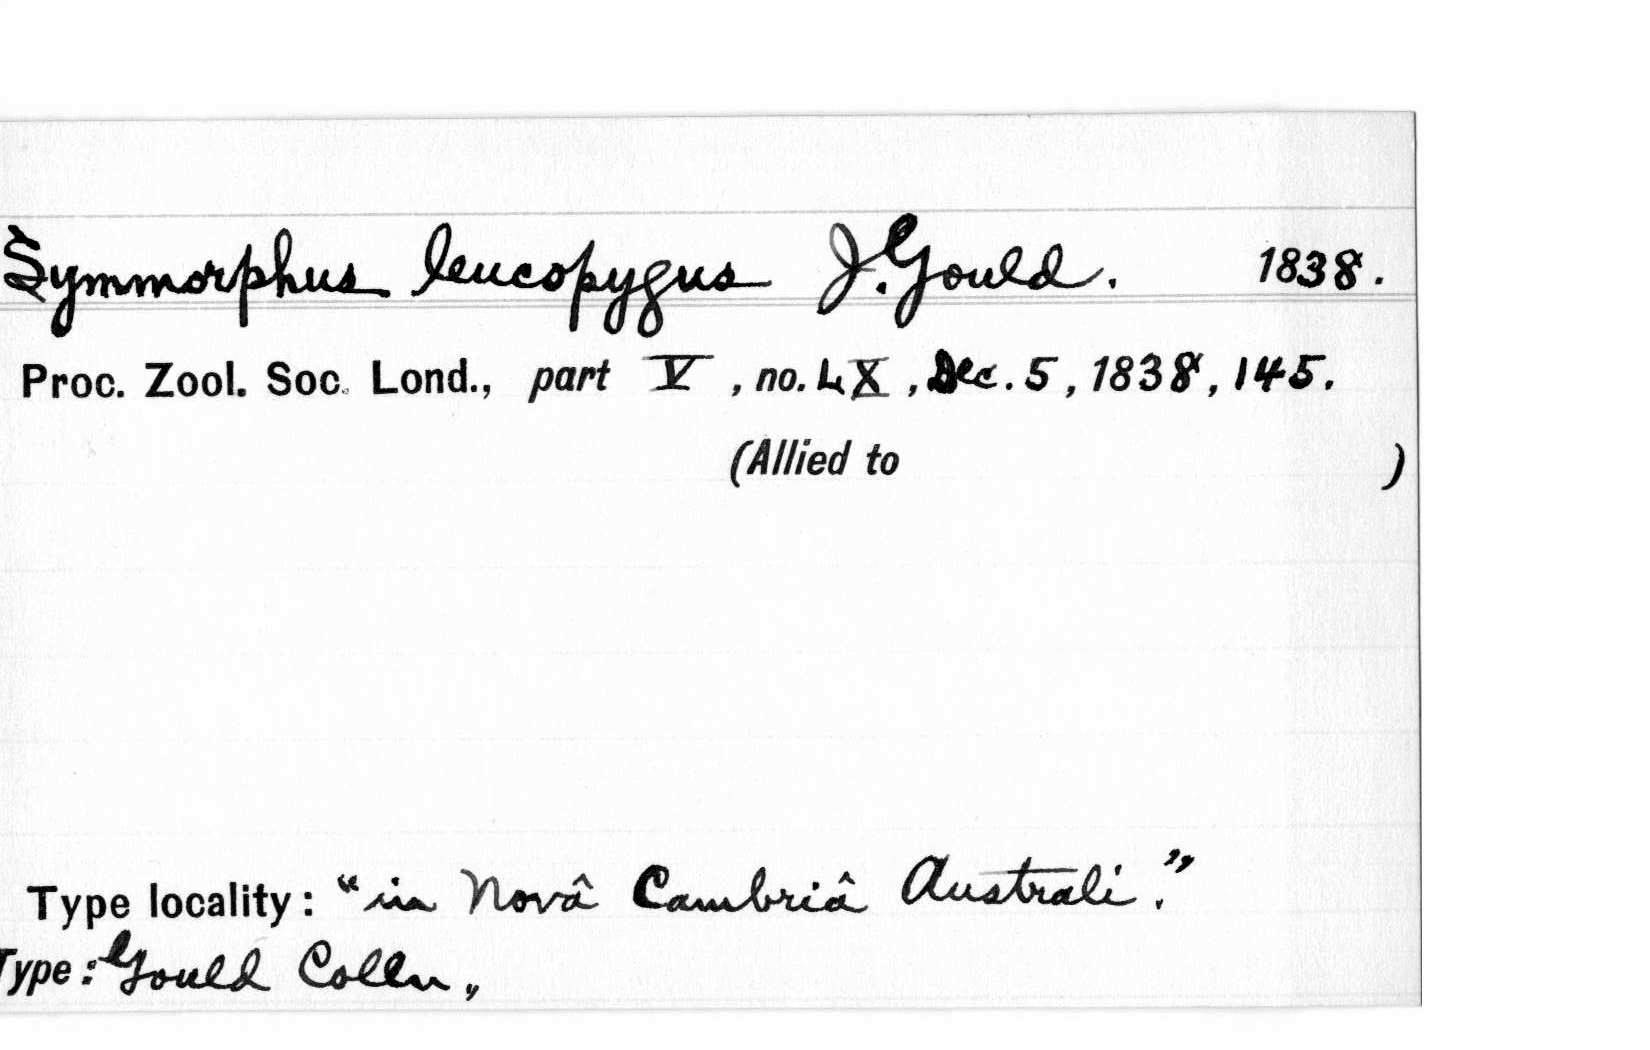 Symmorphus leucopygus J. Gould. 1838.
Proc. Zool. Soc. Lond., part V, no. LX, Dec. 5, 1838, 145.
(Allied to )
Type locality: "in Novâ Cambriâ Australi."
Type: Gould Colln,,